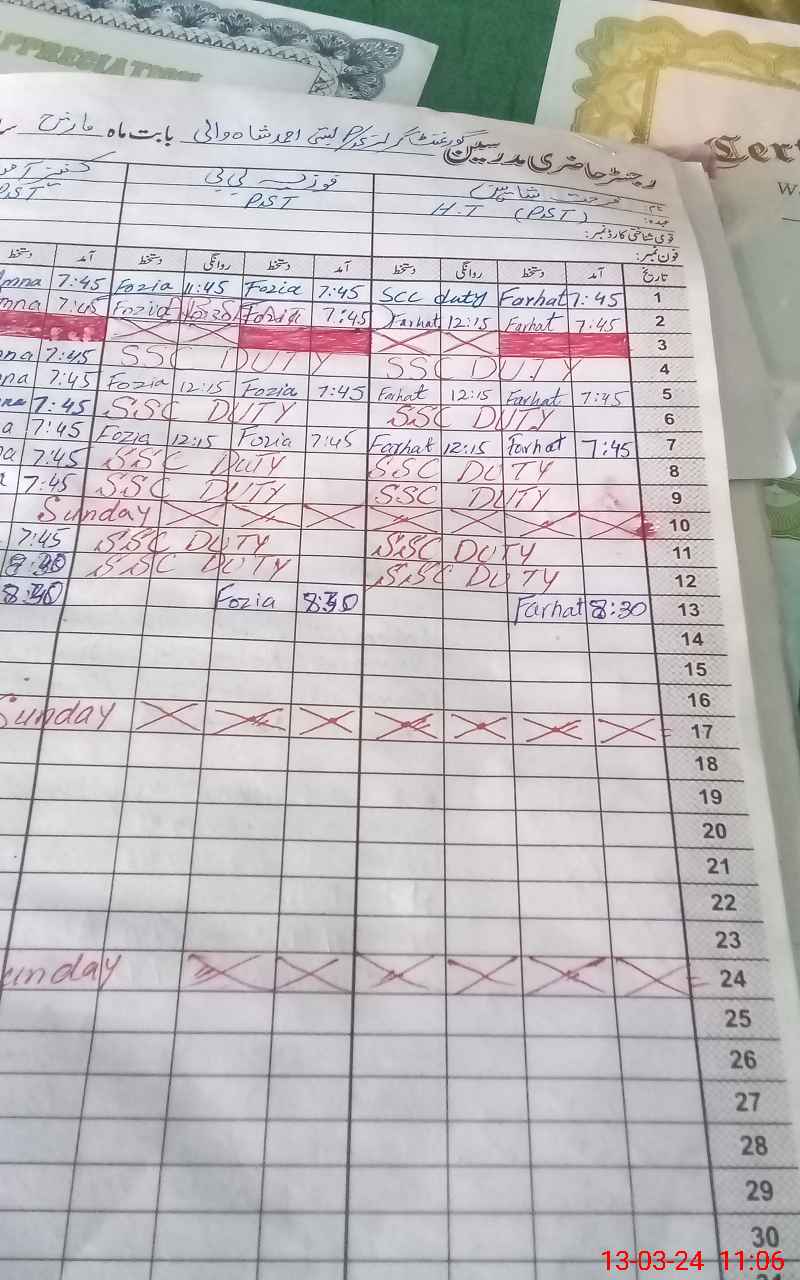 APPRECIATION
Cert
W
رجسٹر حاضری مدرسین گورنمنٹ گرلز P/S بستی احمد شاہ والی بابت ماہ مارچ
نام فرحت شاہین فوزیہ بی بی کنیز آمنہ
عہدہ: H.T (PST) PST PST
قومی شناختی کارڈ نمبر:
فون نمبر:
تاریخ آمد دستخط روانگی دستخط آمد دستخط روانگی دستخط آمد دستخط
Amna 7:45 Fozia 11:45 Fozia 7:45 SCC duty Farhat 7:45 1
mna 7:45 Fozia Fozia 7:45 Farhat 12:15 Farhat 7:45 2
3
na 7:45 SSC DUTY SSC DUTY 4
na 7:45 Fozia 12:15 Fozia 7:45 Farhat 12:15 Farhat 7:45 5
7:45 SSC DUTY SSC DUTY 6
a 7:45 Fozia 12:15 Fozia 7:45 Farhat 12:15 Farhat 7:45 7
na 7:45 SSC DUTY SSC DUTY 8
7:45 SSC DUTY SSC DUTY 9
Sunday 10
7:45 SSC DUTY SSC DUTY 11
8:30 SSC DUTY SSC DUTY 12
8:30 Fozia 8:30 Farhat 8:30 13
14
15
16
Sunday 17
18
19
20
21
22
23
unday 24
25
26
27
28
29
30
13-03-24 11:06